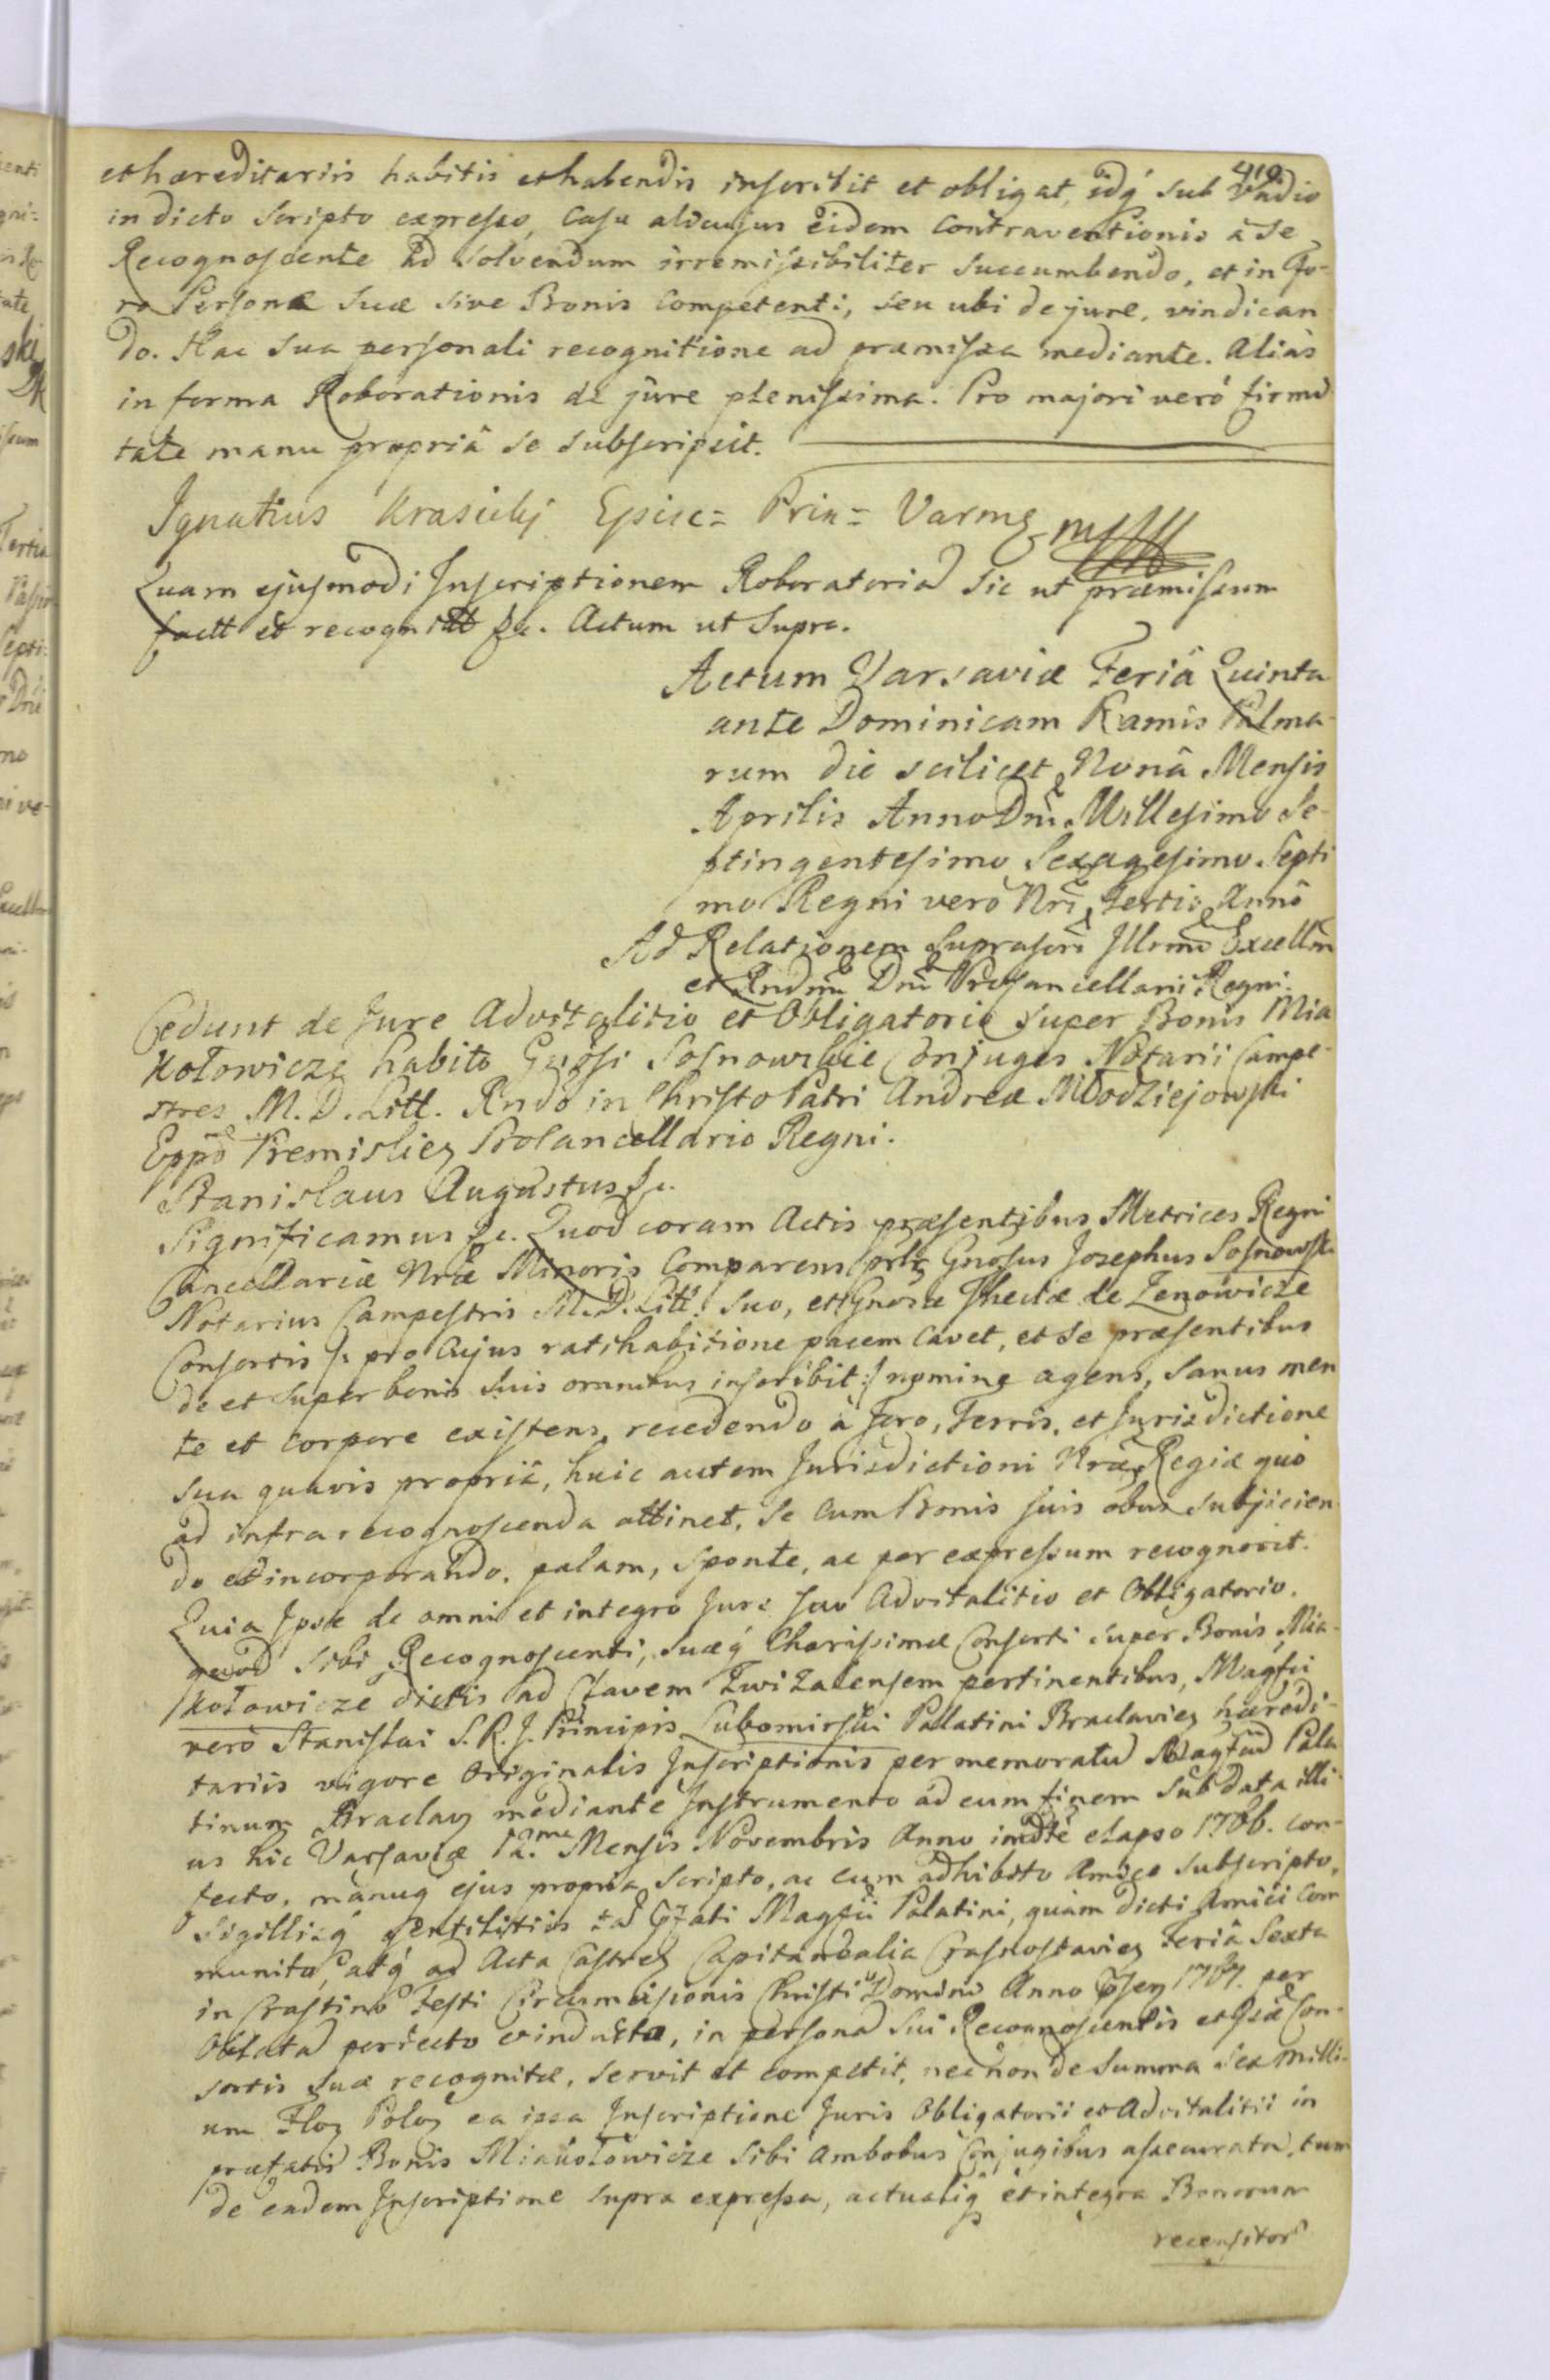 419.
et hæreditariis habitis et habendis inscribit et obligat, idq́ sub Vadio
in dicto Scripto expresso, Casu alicujus eidem Contraventionis à Se
Recognoscente ad Solvendum irremissibiliter succumbendo, et in Fo-
ro Personæ Suæ sive Bonis Competenti, seu ubi de jure, vindican
do. Hac Sua personali recognitione ad præmissa mediante. Alias
in forma Roborationis de jure plenissima. Pro majori verò firmi
tate manu propriâ se subscripsit.
Ignatius Krasicky Episc= Prin= Varm mpp
Quam ejusmodi Inscriptionem Roboratoria sic ut præmissum
facit et recognitt &c. Actum ut Supra.
Actum Varsaviæ Feriâ Quinta
ante Dominicam Ramis Palma-
rum die scilicet Nonâ Mensis
Aprilis Anno Dni Millesimo Se-
ptingentesimo Sexagesimo Septi
mo Regni verò Nri tertio Annô
Ad Relationem suprascri Illrmi Excellm
et Rndmi Dni ProCancellarii Regni.
Cedunt de Jure Advitalitio et Obligatorio super Bonis Mia
Kołowicze habito Gnosi Sosnowskie Conjuges Notarii Campe-
stres M. D. Litt. Rndo in Christo Patri Andreæ Młodziejowski
Eppo Premislien ProCancellario Regni.
Stanislaus Augustus &c.
Significamus &c. Quod coram Actis præsentibus Metrices Regni
Cancellariæ Nræ Minoris Comparens prlr Gnosus Josephus Sosnowski
Notarius Campestris M. D. Litt. suo, et Gnosæ Theclæ de Zenowicze
Consortis /: pro Cujus ratihabitione pacem Cavet, et se præsentibus
de et super bonis suis omnibus inscribit :/ nomine agens, Sanus men
te et corpore existens, recedendo à foro, Terris, et Jurisdictione
sua quavis propriâ, huic autem Jurisdictioni Nræ Regiæ quò
ad infra recognoscenda attinet, Se Cum Bonis suis obus subjicien
do et incorporando, palam, sponte, ac per expressum recognovit.
Quia Ipse de omni et integro Jure suo Advitalitio et Obligatorio.
quod sibi Recognoscenti, suæq́ Charissimæ Consorti super Bonis Mia-
kołowicze dictis ad Clavem Zwizalensem pertinentibus, Magfci
verò Stanislai S. R. J. Principis Lubomirski Pallatini Braclavien hæredi-
tariis vigore Originalis Inscriptionis per memoratu Magfcu Pala
tinum Braclav mediante Instrumento ad eum finem sub data illi
us hic Varsaviæ 12.ma Mensis Novembris Anno imdte elapso 1766. con-
fecto, manuq ejus propria Scripto, ac cum adhibito Amico subscripto,
Sigillisq́ gentilitiis tad Gfati Magfci Palatini, quàm dicti Amici Com
munito, atq́ ad Acta Castren Capitanealia Crasnostavien Feriâ Sexta
in Crastino Festi Circumcisionis Christi Domini Anno psen 1767. per
Oblata perfecto et inducto, in personâ sui Recognoscentis et Gsæ Con-
sortis suæ recognitæ, servit et competit, nec non de Summa Sex milli-
um Flor Polo ea ipsa Inscriptione Juris Obligatorii et Advitalitii in
præfatis Bonis Miakołowicze sibi Ambobus Conjugibus assecurata, tum
de eadem Inscriptione supra expressa, actualiq et integra Bonorum
recensitor